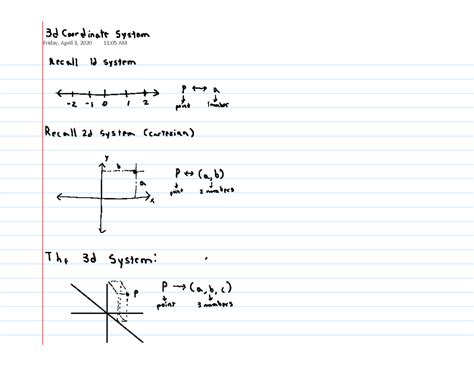 3d Coordinate System
Friday, April 3, 2020 11:05 AM
Recall 1d system
P ↔ a
point 1 number
-2 -1 0 1 2
Recall 2d system (cartesian)
y
b
a
x
P ↔ (a, b)
point 2 numbers
The 3d System:
P
P → (a, b, c)
point 3 numbers